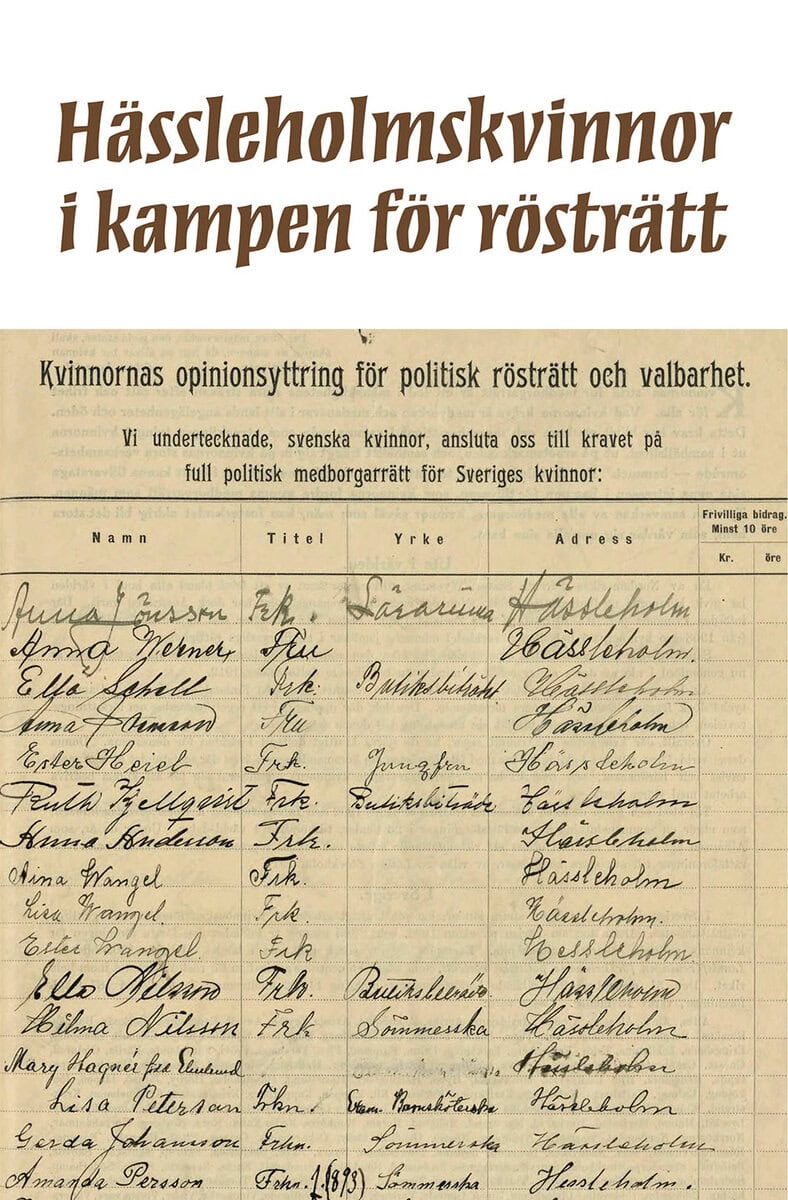 Hässleholmskvinnor
i kampen för rösträtt
Kvinnornas opinionsyttring för politisk rösträtt och valbarhet.
Vi undertecknade, svenska kvinnor, ansluta oss till kravet på
full politisk medborgarrätt för Sveriges kvinnor:
Namn Titel Yrke Adress Frivilliga bidrag. Minst 10 öre
Kr. öre
Anna Jönsson Frk. Lärarinna Hässleholm
Anna Werner Fru Hässleholm.
Ella Schell Frk. Butiksbiträde Hässleholm
Anna Fru Hässleholm
Ester Heich Frk. Jungfru Hässleholm
Ruth Kjellqvist Frk. Butiksbiträde Hässleholm
Anna Anderson Frk. Hässleholm
Aina Wangel Frk. Hässleholm
Lisa Wangel. Frk. Hässleholm.
Ester Wangel. Frk Hessleholm
Ella Nilsson Frk. Hässleholm
Hilma Nilsson Frk Sömmerska Hässleholm
Mary Hagnér född Hässleholm
Lisa Peterson Frkn. Exam. Barnsköterska Hässleholm
Gerda Johansson Frkn. Sömmerska Hässleholm
Amanda Persson Frkn. f. (893) Sömmerska Hessleholm.